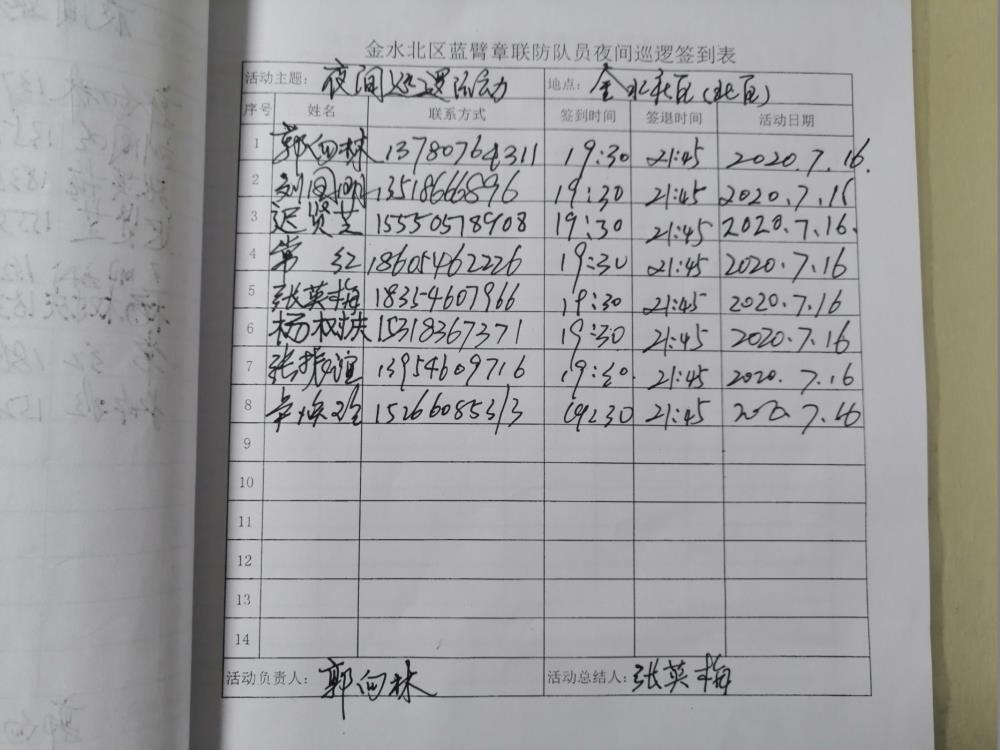 金水北区蓝臂章联防队员夜间巡逻签到表
活动主题: 夜间巡逻活动 地点: 金水北区(北区)
序号 姓名 联系方式 签到时间 签退时间 活动日期
1 郭向林 13780764311 19:30 21:45 2020.7.16.
2 刘国明 13518666896 19:30 21:45 2020.7.16
3 迟贤芝 15550578908 19:30 21:45 2020.7.16.
4 常红 18605462226 19:30 21:45 2020.7.16
5 张英梅 18354607966 19:30 21:45 2020.7.16
6 杨树庆 15318367371 19:30 21:45 2020.7.16
7 张振谊 13954609716 19:30. 21:45 2020.7.16
8 15266085313 19:30 21:45 2020.7.16
9
10
11
12
13
14
活动负责人: 郭向林 活动总结人: 张英梅